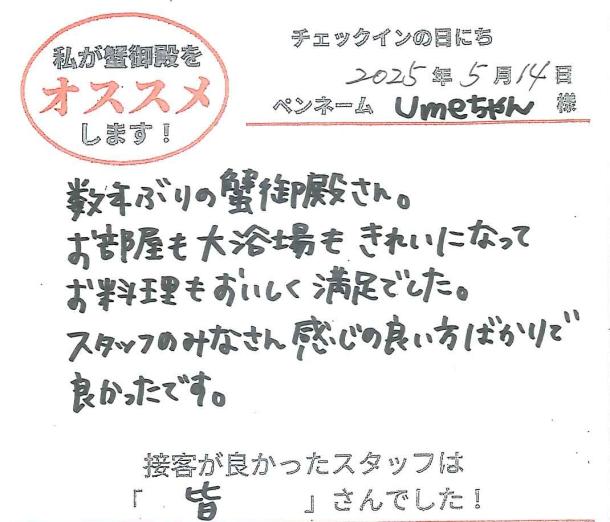 私が蟹御殿を
オススメ
します！
チェックインの日にち
2025年5月14日
ペンネーム Umeちゃん 様
数年ぶりの蟹御殿さん。
お部屋も大浴場もきれいになって
お料理もおいしく満足でした。
スタッフのみなさん感じの良い方ばかりで
良かったです。
接客が良かったスタッフは
「 皆 」さんでした！